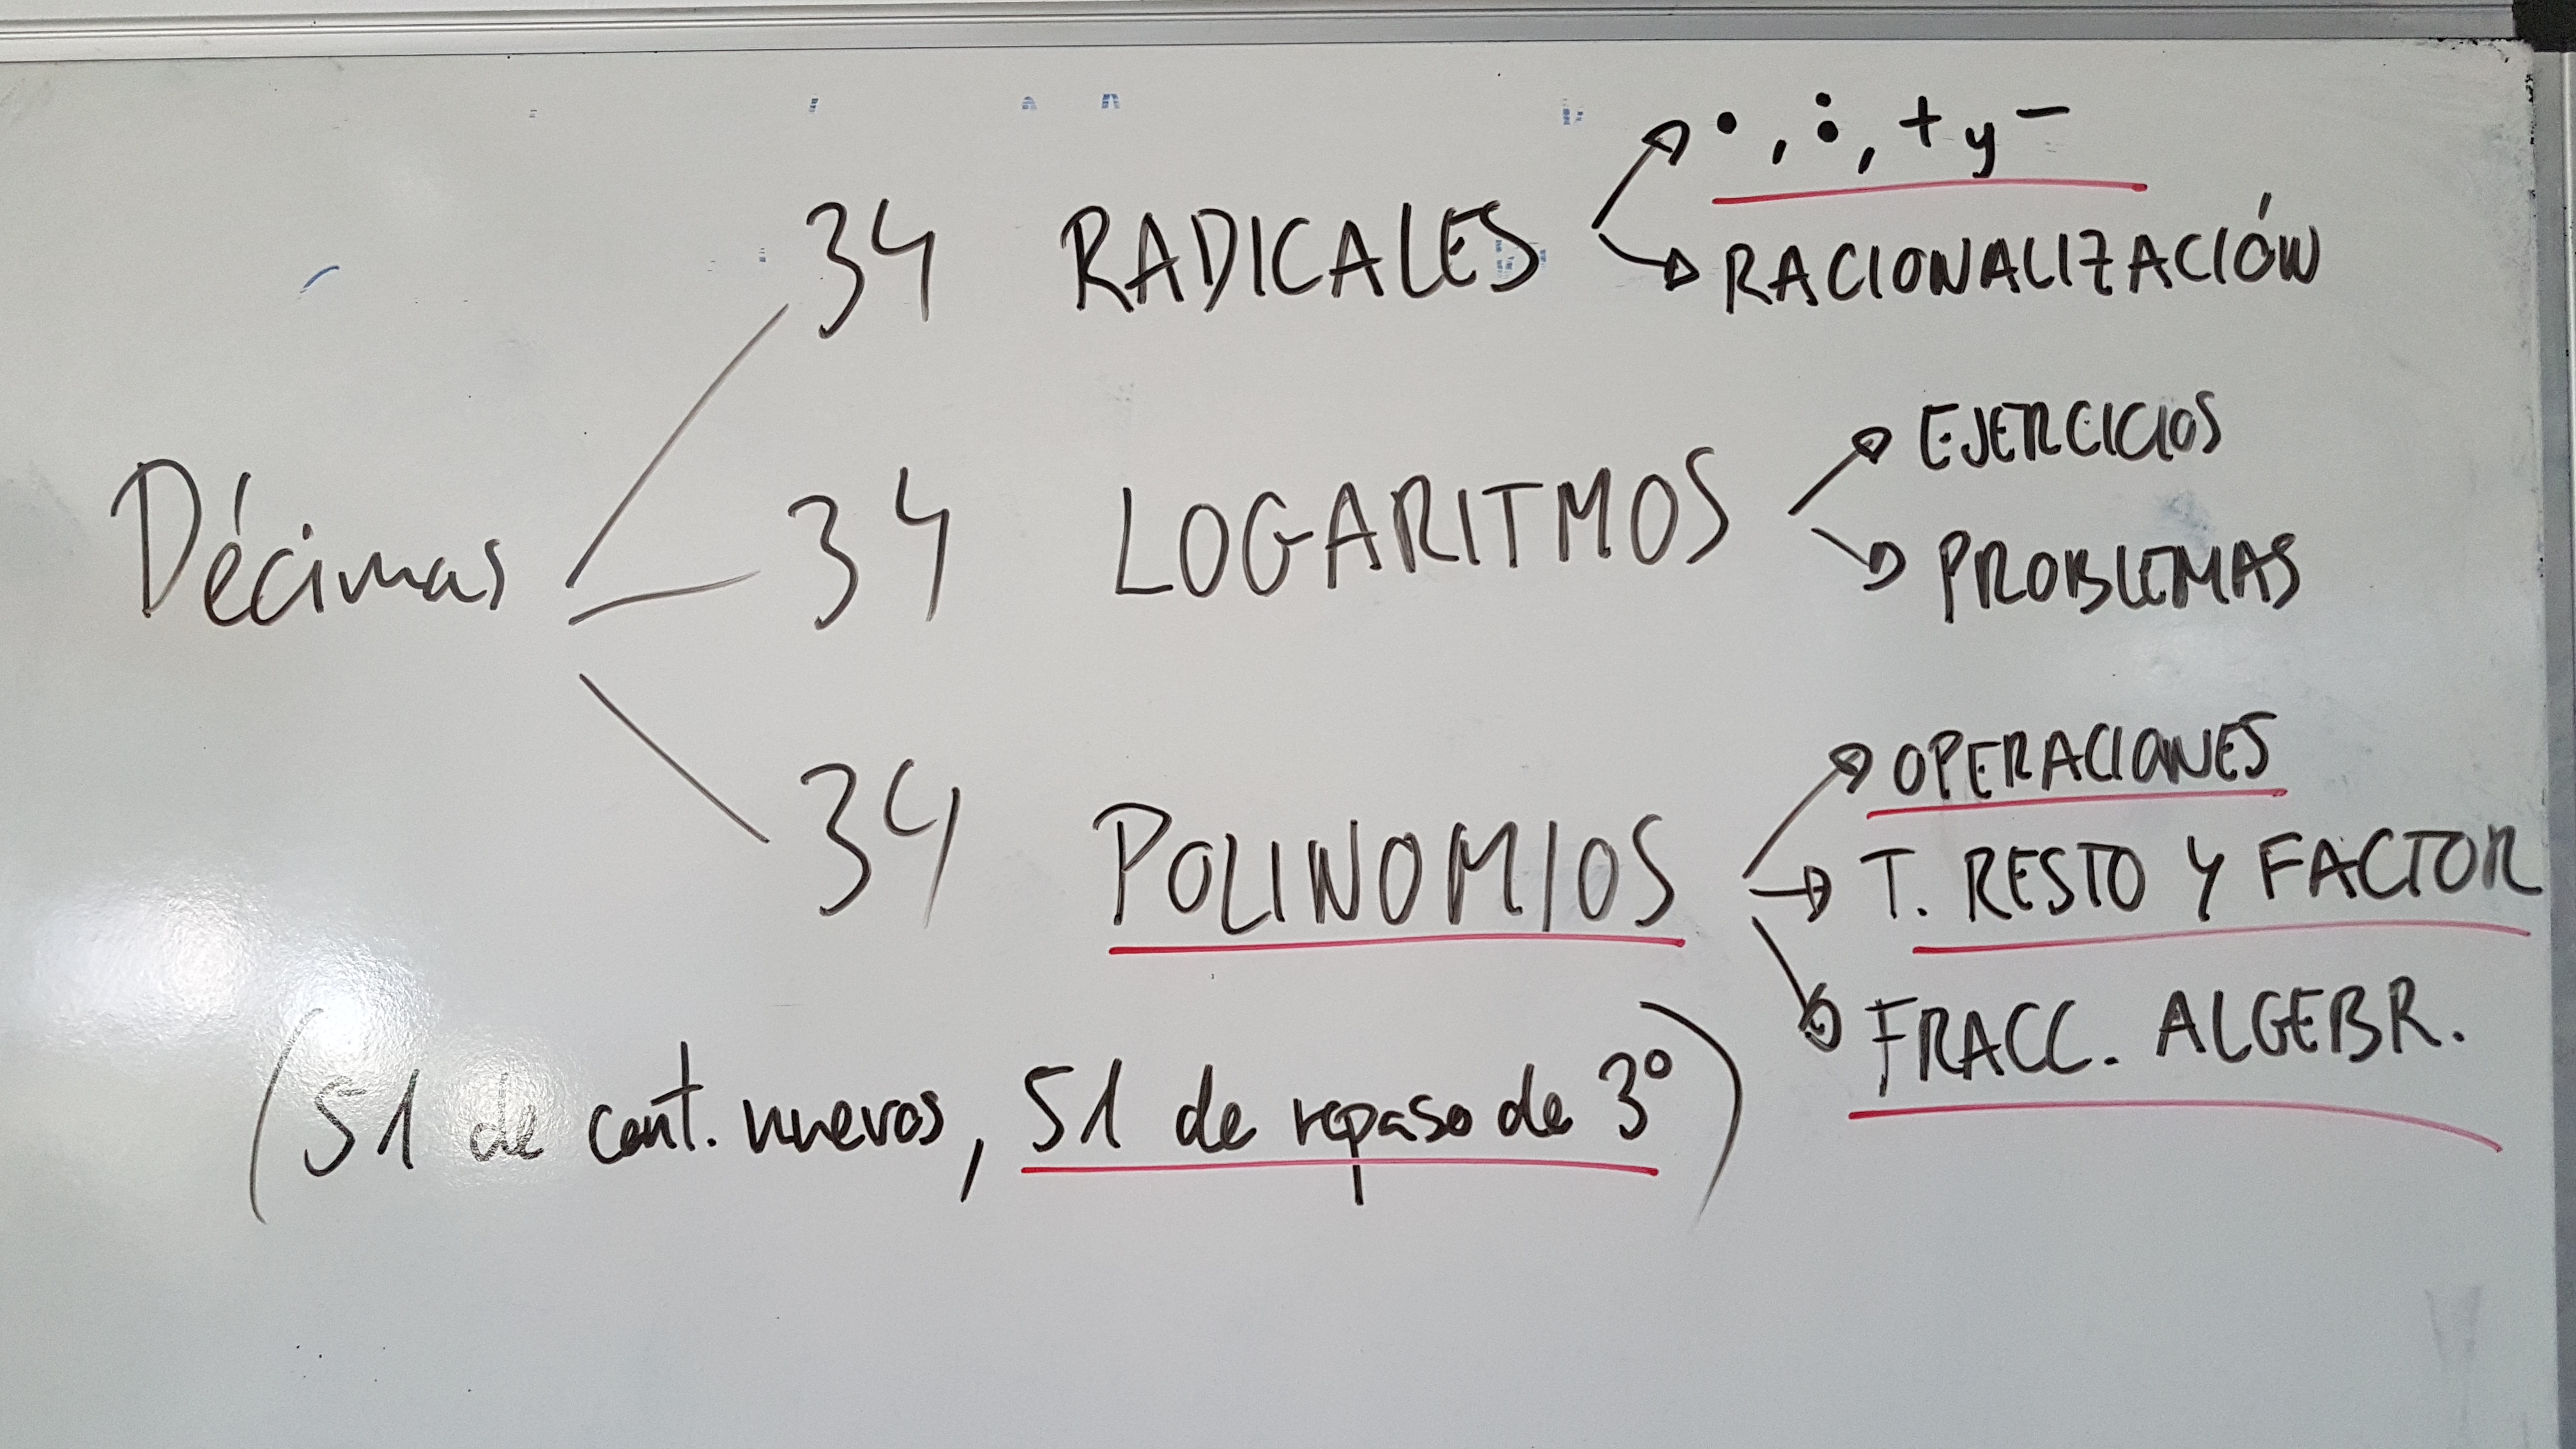 •, :, + y -
34 RADICALES
RACIONALIZACIÓN
EJERCICIOS
Décimas 34 LOGARITMOS
PROBLEMAS
OPERACIONES
34 POLINOMIOS T. RESTO Y FACTOR
FRACC. ALGEBR.
(51 de cont. nuevos, 51 de repaso de 3º)